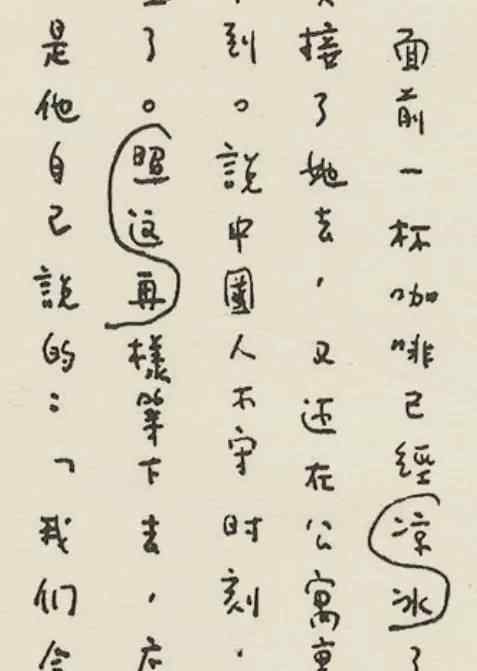 面前一杯咖啡已經凉冰了
接了她去，又还在公寓裏
到。說中國人不守时刻，
了。照这再樣等下去，
是他自己說的：「我们